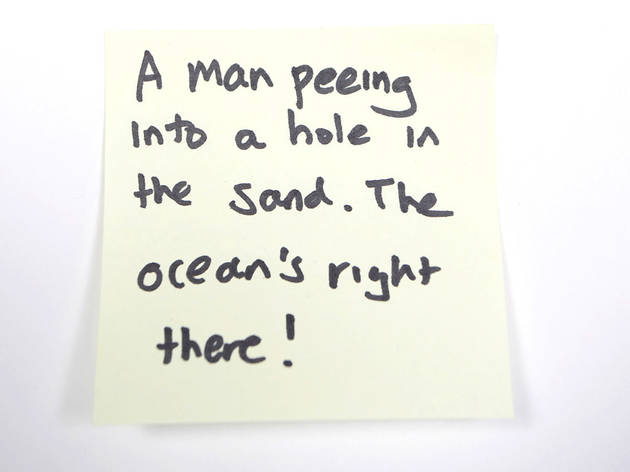 A man peeing
into a hole in
the sand. The
ocean's right
there!